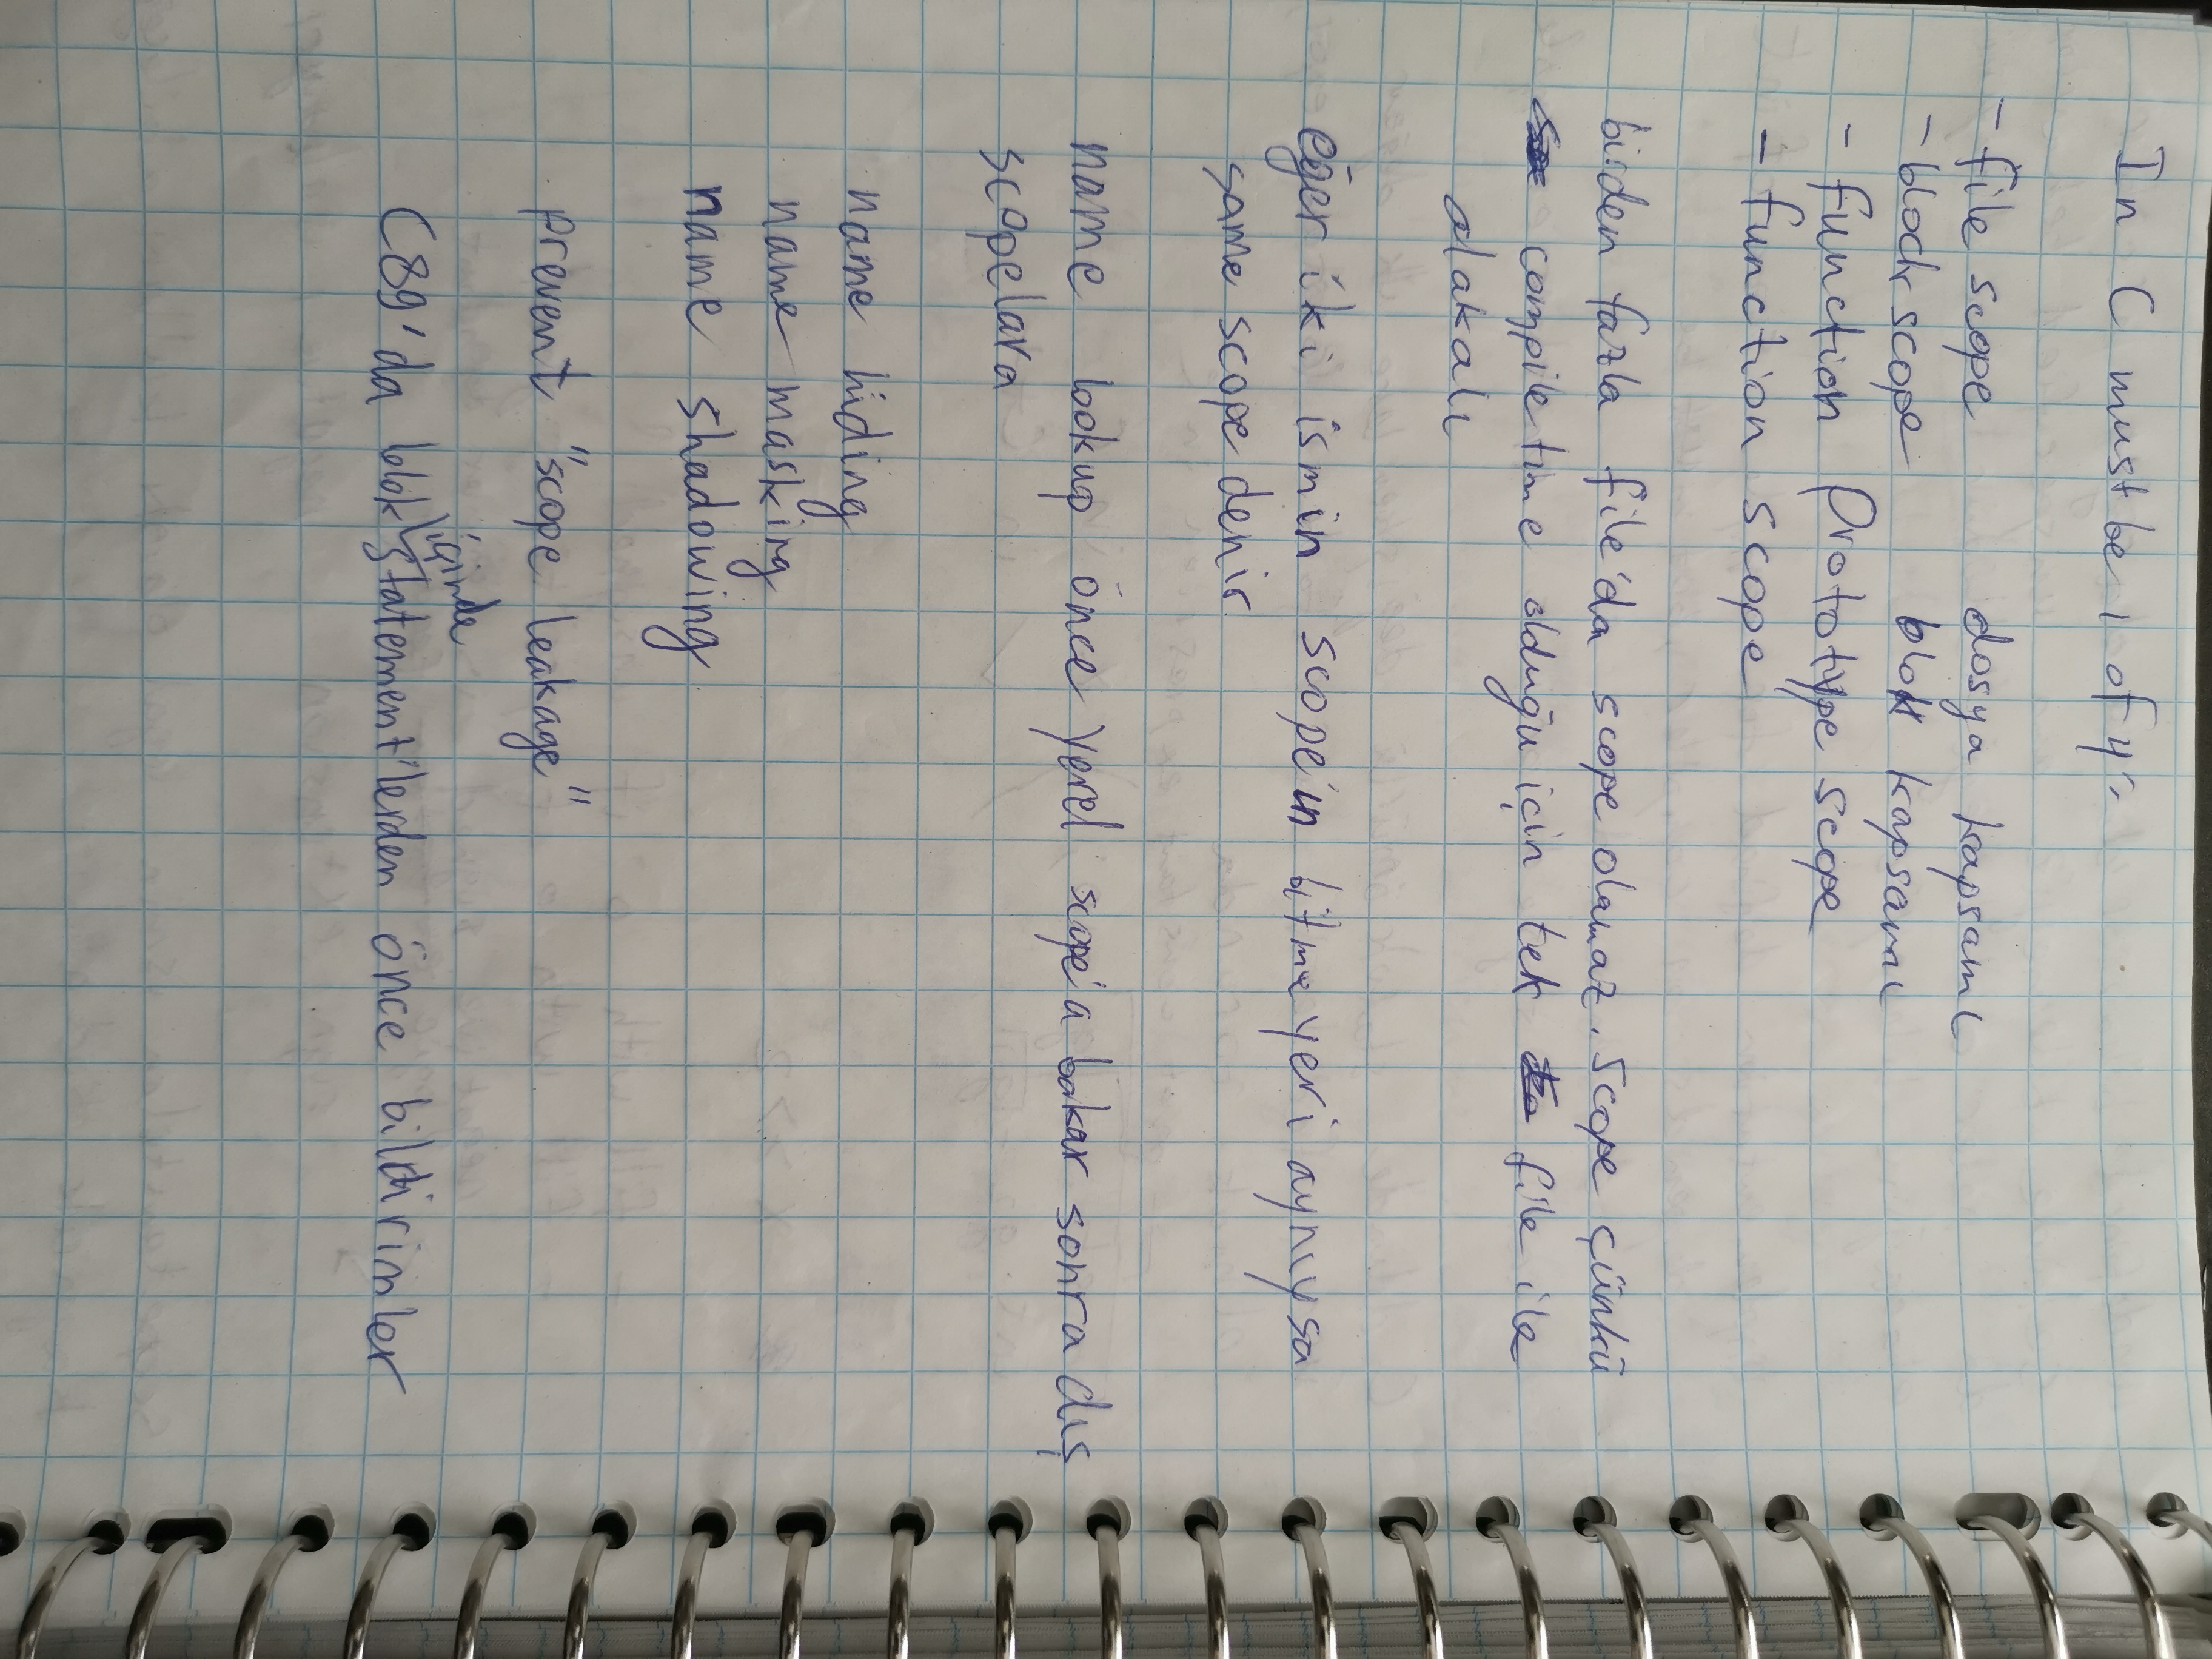 In C must be 1 of 4:
- file scope dosya kapsamı
- block scope blok kapsamı
- function Prototype scope
- function scope
birden fazla file'da scope olamaz. Scope çünkü
compile time olduğu için tek file ile
alakalı
eğer iki ismin scope'ın bitme yeri aynıysa
same scope denir
name lookup önce yerel scope'a bakar sonra dış
scopelara
name hiding
name masking
name shadowing
prevent "scope leakage"
C89'da blok içinde statement'lerden önce bildirimler